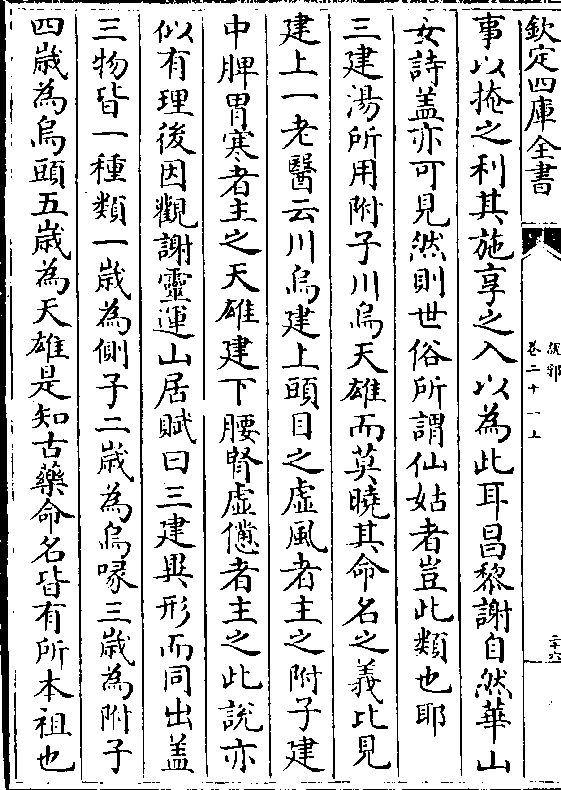 欽定四庫全書
說郛
卷二十一上
二十六
事以掩之利其施享之入以為此耳昌黎謝自然華山
女詩蓋亦可見然則世俗所謂仙姑者豈此類也耶
三建湯所用附子川烏天雄而莫曉其命名之義比見
建上一老醫云川烏建上頭目之虛風者主之附子建
中脾胃寒者主之天雄建下腰腎虛憊者主之此說亦
似有理後因觀謝靈運山居賦曰三建異形而同出蓋
三物皆一種類一嵗為側子二嵗為烏喙三嵗為附子
四嵗為烏頭五嵗為天雄是知古藥命名皆有所本祖也